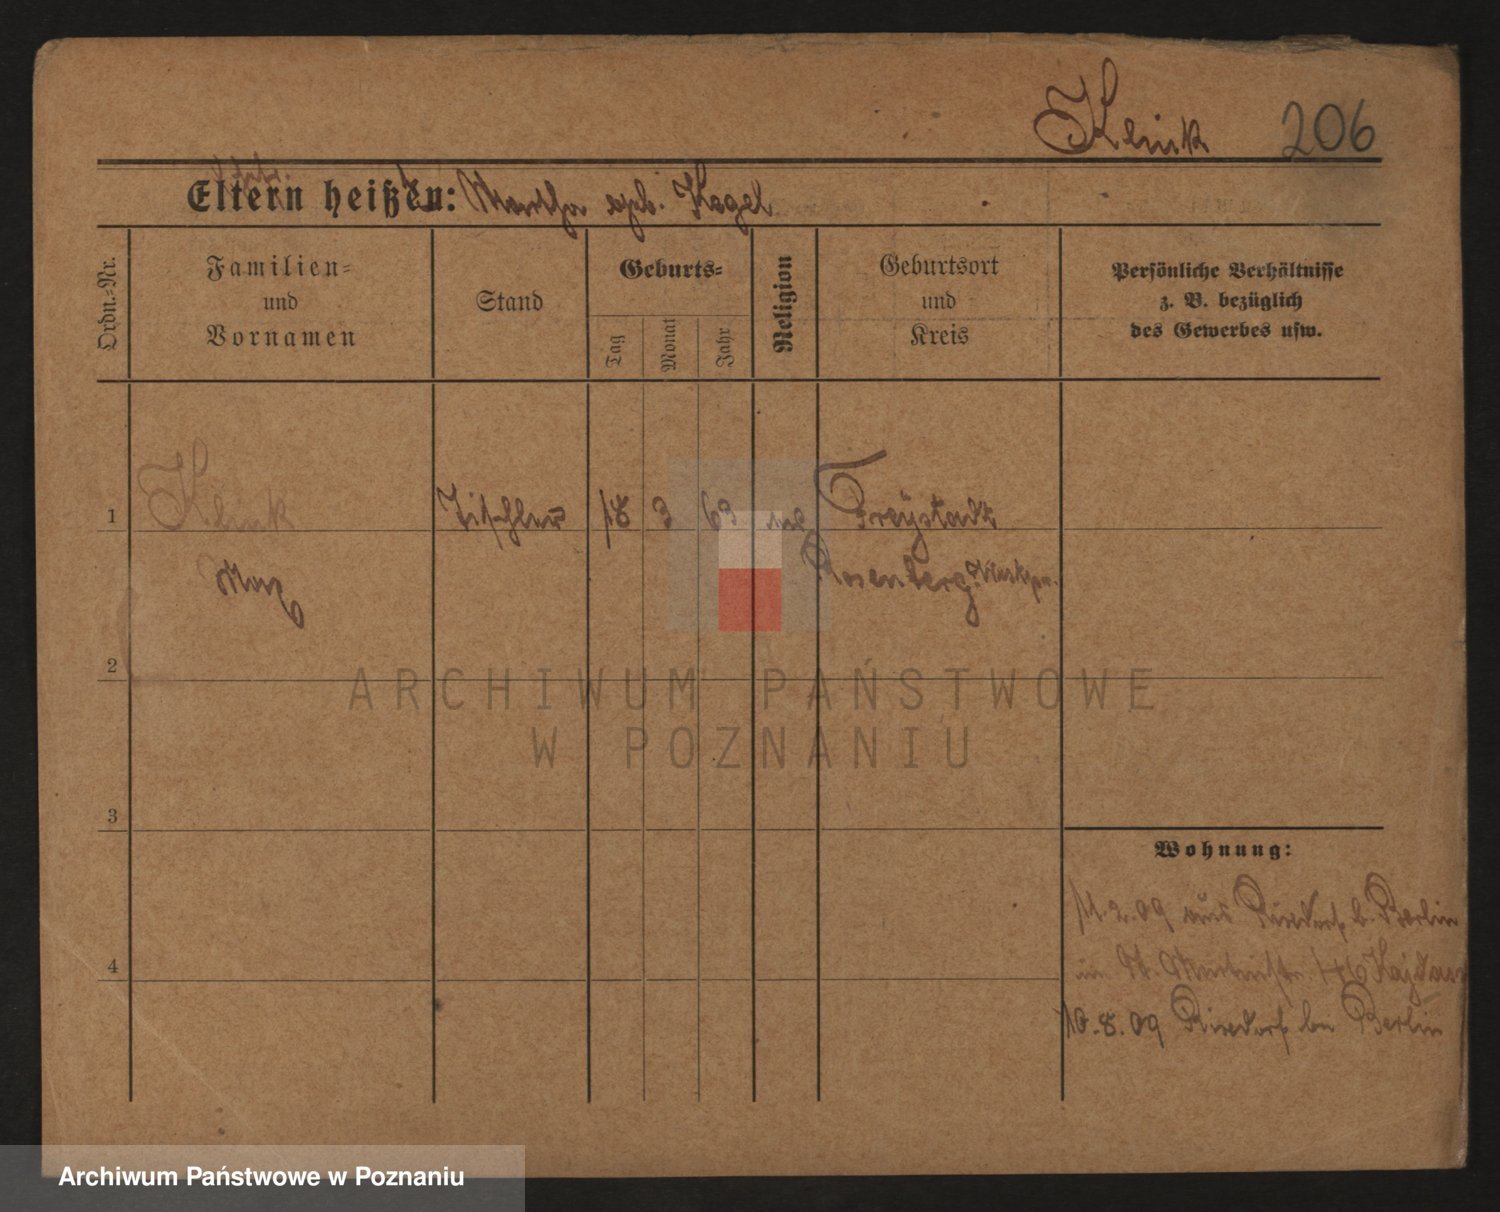 Klink 206
Eltern heißen: Martha geb. Kogel
Ordn.-Nr.
Familien-
und
Vornamen
Stand
Geburts-
Tag
Monat
Jahr
Religion
Geburtsort
und
Kreis
Persönliche Verhältnisse
z. B. bezüglich
des Gewerbes usw.
1 Klink Tischler 18 3 63 Freystadt
Max Rosenberg
2
ARCHIWUM PAŃSTWOWE
W POZNANIU
3
Wohnung:
11.2.09 aus Rixdorf b. Berlin
4
10.8.09 Rixdorf bn Berlin
Archiwum Państwowe w Poznaniu